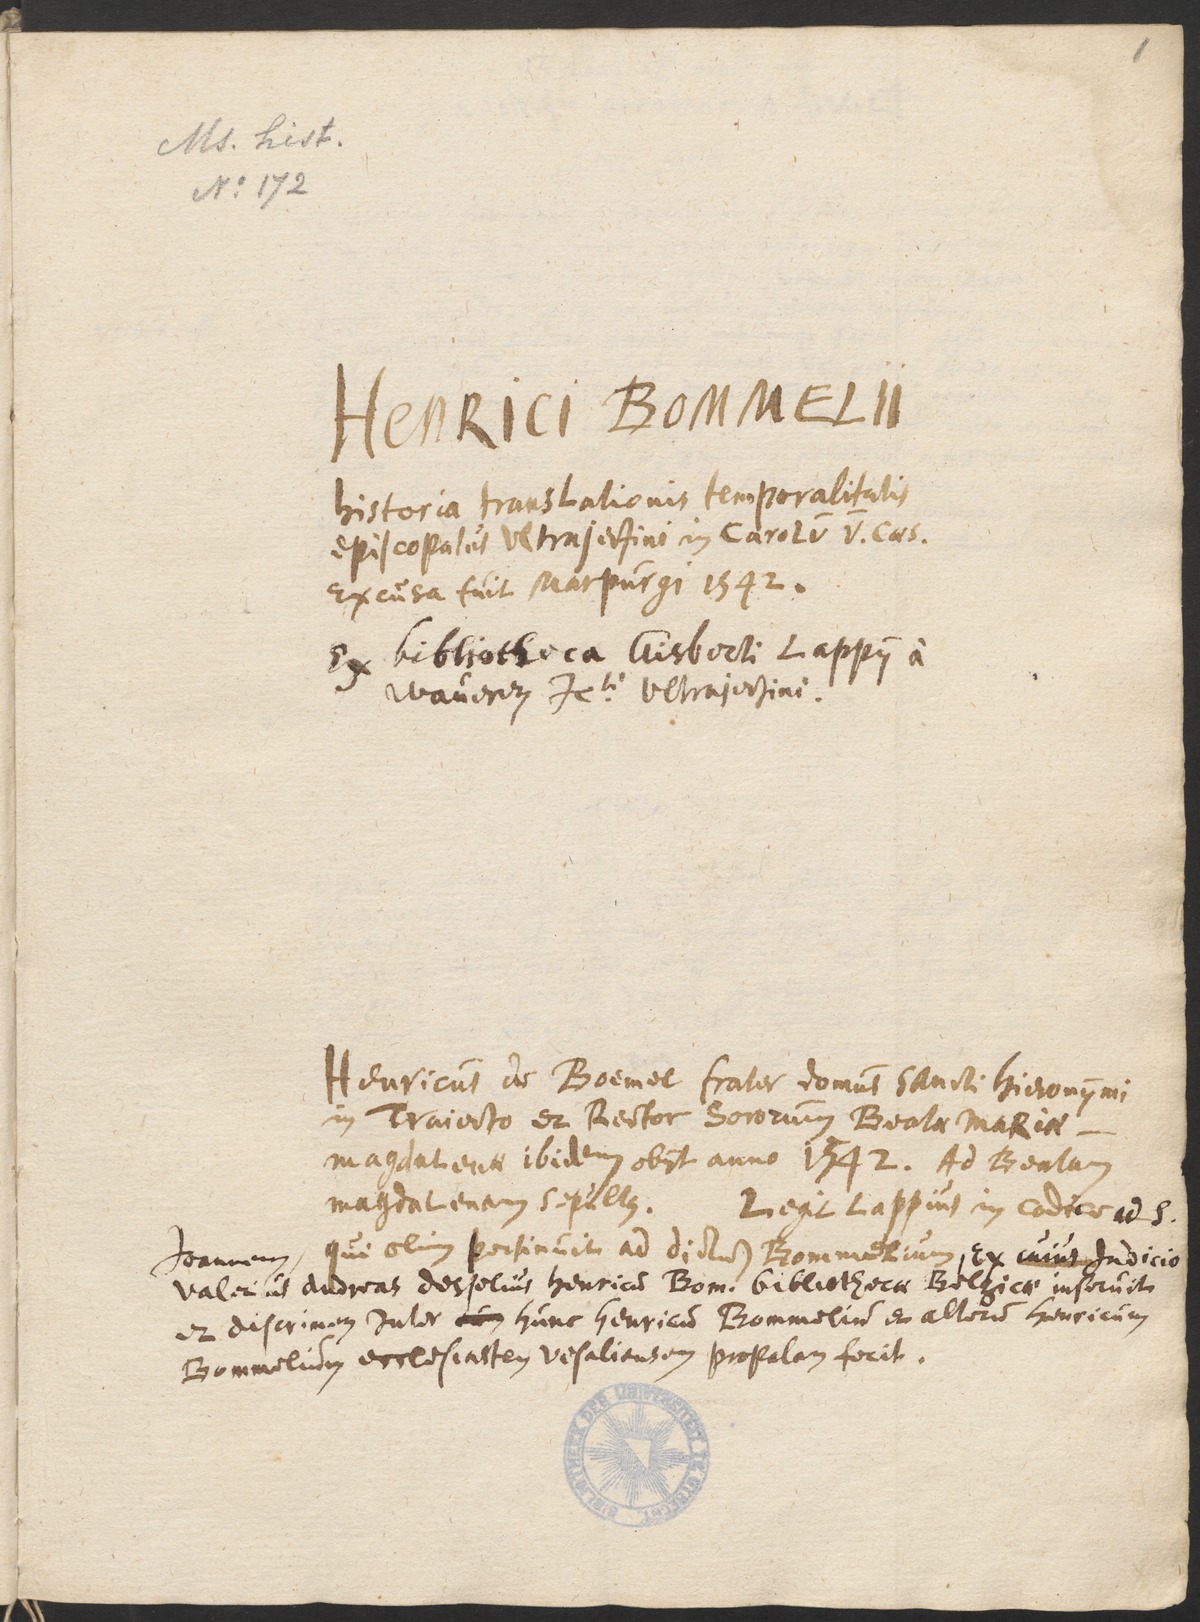 1
Ms. hist.
No: 172
HenRICI BOMMELII
historia translationis temporalitatis
episcopatus Ultrajectini in Carolū V. Cæs.
Excusa fuit Marpurgi 1542.
Ex bibliotheca Gisberti Lappÿ à
Waveren Jcti Ultrajectini.
Henricus de Boemel frater domus Sancti Hieronÿmi
in Traiecto et Rector Sororum Beatæ MaRiæ
magdalenæ ibidem obÿt anno 1542. Ad Beatam
magdalenam sepult9.
Legit Lappius in codice ad S.
Joannem, qui olim pertinuit ad dictū Bommelium, Ex cuius Indicio
Valerius Andreas Desselius Henricū Bom. bibliothecæ Belgicæ inseruit
et discrimen Inter hunc Henricū Bommeliū et alterū Henricum
Bommelium ecclesiasten Vesaliensem propalam fecit.
BIBLIOTHEEK DER UNIVERSITEIT TE UTRECHT